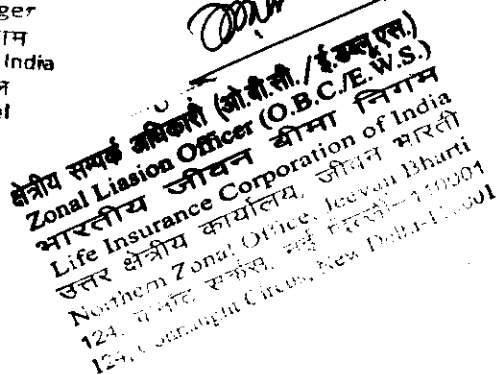 ger
India
क्षेत्रीय सम्पर्क अधिकारी (ओ.बी.सी./ई.डब्लू.एस.)
Zonal Liasion Officer (O.B.C./E.W.S.)
भारतीय जीवन बीमा निगम
Life Insurance Corporation of India
उत्तर क्षेत्रीय कार्यालय, जीवन भारती
Northern Zonal Office, Jeevan Bharti
124, सर्कस, नई दिल्ली-110001
124, Connaught Circus, New Delhi-110001